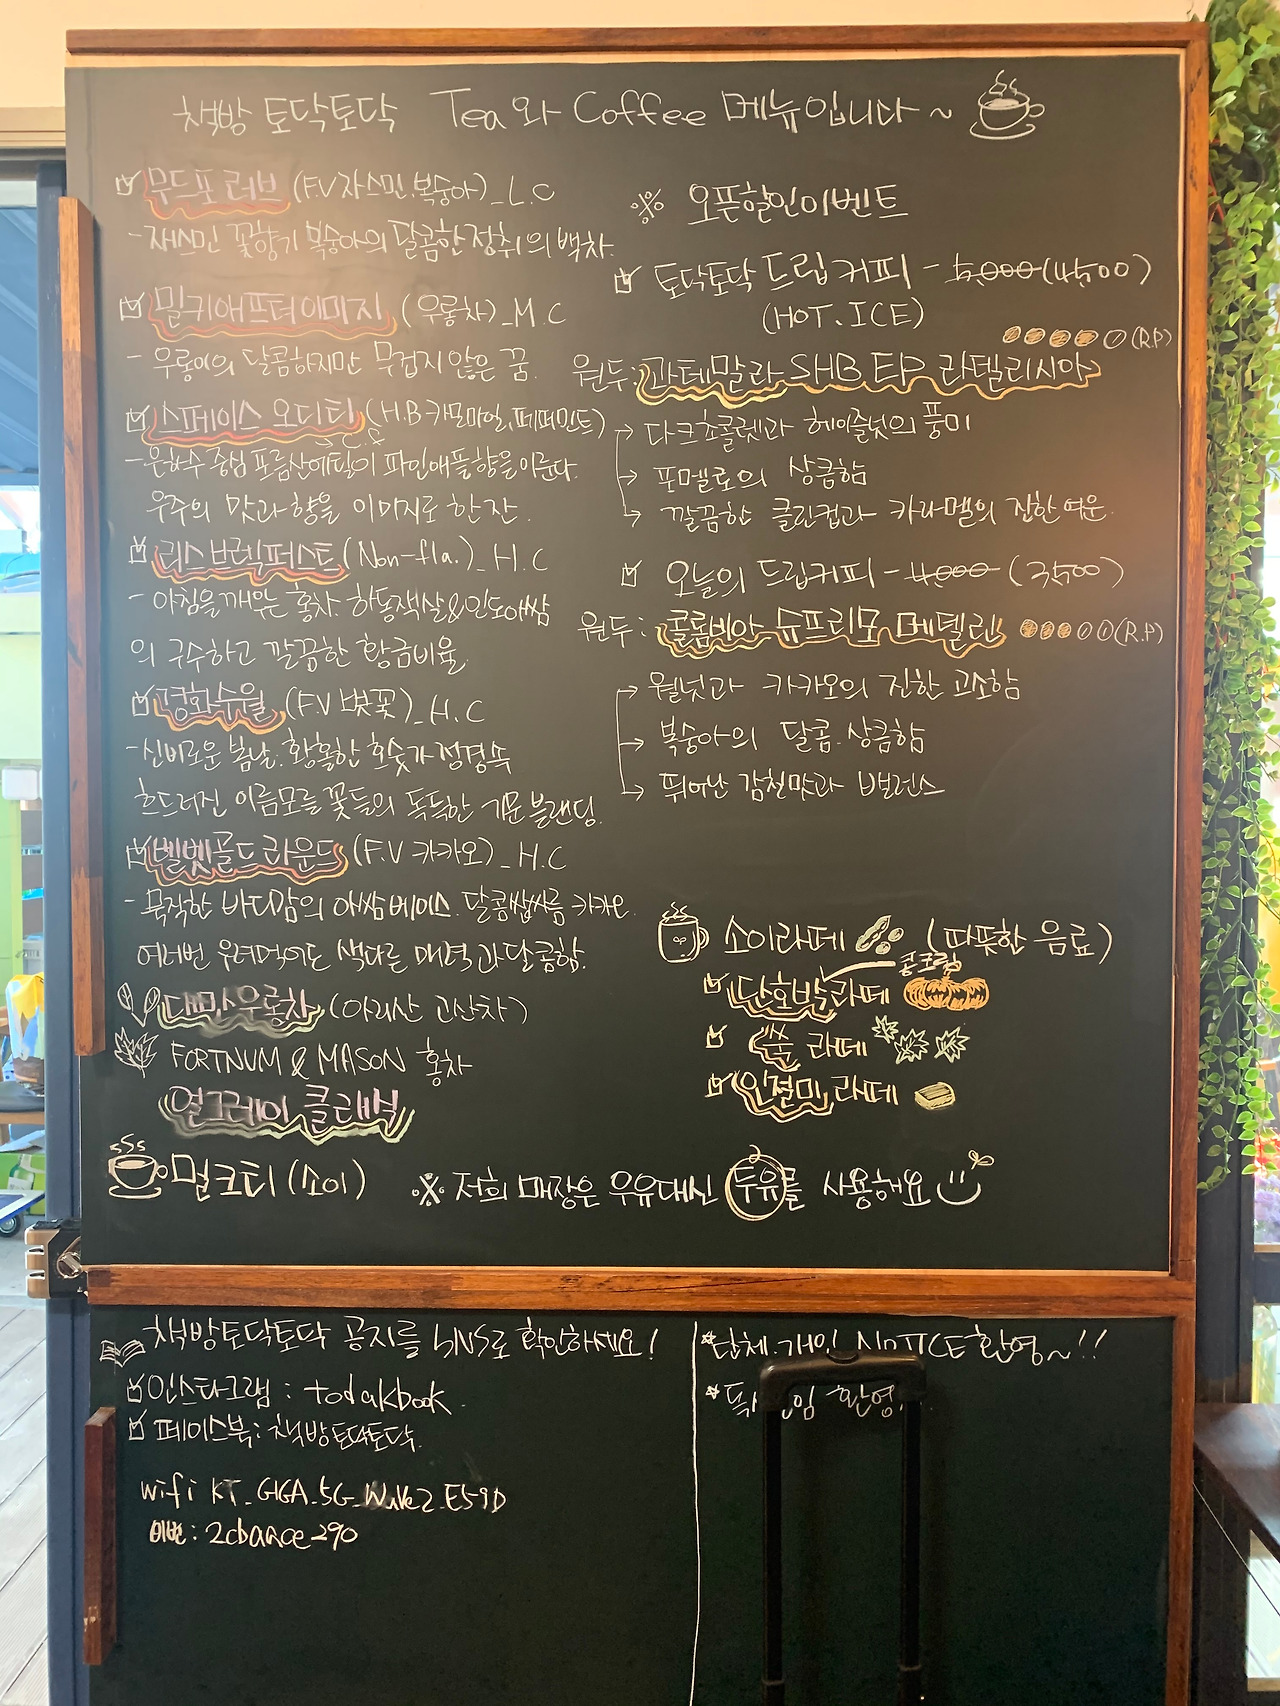 책방 토닥토닥 Tea와 Coffee 메뉴입니다~
무드포 러브 (F.V 자스민, 복숭아)_L.C
- 재스민 꽃향기 복숭아의 달콤한 정취의 백차.
밀키애프터이미지 (우롱차)_M.C
- 우롱이의 달콤하지만 무겁지 않은 꿈.
스페이스 오디티 (H.B 카모마일, 페퍼민트)
→ C.f
- 은하수 중심 포름산에틸이 파인애플향을 이룬다.
우주의 맛과 향을 이미지로 한 잔.
리스브렉퍼스트 (Non-fla.)_H.C
- 아침을 깨우는 홍차. 하동잭살&인도아쌈
의 구수하고 깔끔한 황금비율.
경화수월 (F.V 벚꽃)_H.C
- 신비로운 봄날. 황홀한 호숫가 정경속
흐드러진 이름모를 꽃들의 독특한 가문 블랜딩.
벨벳골드라운드 (F.V 카카오)_H.C
- 묵직한 바디감의 아쌈베이스. 달콤쌉싸름 카카오.
여러번 우려먹어도 색다른 매력과 달콤함.
대만우롱차 (아리산 고산차)
FORTNUM & MASON 홍차
얼그레이 클래식
밀크티 (소이)
※ 오픈할인이벤트
토닥토닥 드립커피 - 5,000 (4,500)
(HOT. ICE)
(R.P)
원두: 과테말라 SHB EP 라델리시아
→ 다크초콜렛과 헤이즐넛의 풍미
→ 포멜로의 상큼함
→ 깔끔한 클린컵과 카라멜의 진한 여운.
오늘의 드립커피 - 4,000 (3,500)
원두: 콜롬비아 슈프리모 메델린 (R.P)
→ 월넛과 카카오의 진한 고소함
→ 복숭아의 달콤. 상큼함
→ 뛰어난 감칠맛과 밸런스
소이라떼 (따뜻한 음료)
콩크림
단호박라떼
쑥 라떼
인절미 라떼
※ 저희 매장은 우유대신 두유를 사용해요
책방토닥토닥 공지를 SNS로 확인하세요!
인스타그램 : todakbook.
페이스북 : 책방토닥토닥.
wifi KT_GiGA_5G_Wave2_E59D
비번 : 2cbance290
*단체. 개인 NOTICE 환영~!!
* 독 임 환영